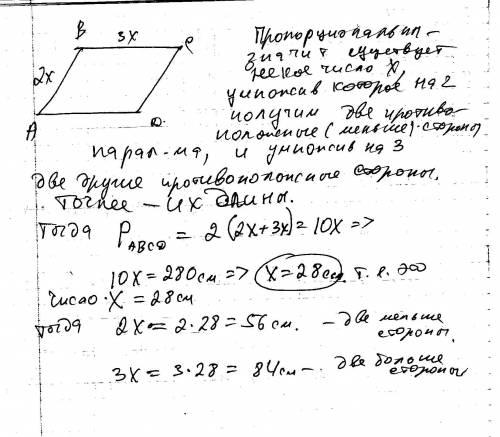 B 3x C
2x
A D
Пропорциональн-
значит существует
некое число X,
умножив которое на 2
получим две противо-
положные (меньше) стороны
парал-ма, и умножив на 3
две другие противоположные стороны.
Точнее – их длины.
Тогда P ABCD = 2(2x+3x) = 10x =>
10x = 280 см => x = 28 см, т.е. это
число X = 28 см
тогда 2x = 2·28 = 56 см. – две меньше
стороны.
3x = 3·28 = 84 см – две больше
стороны